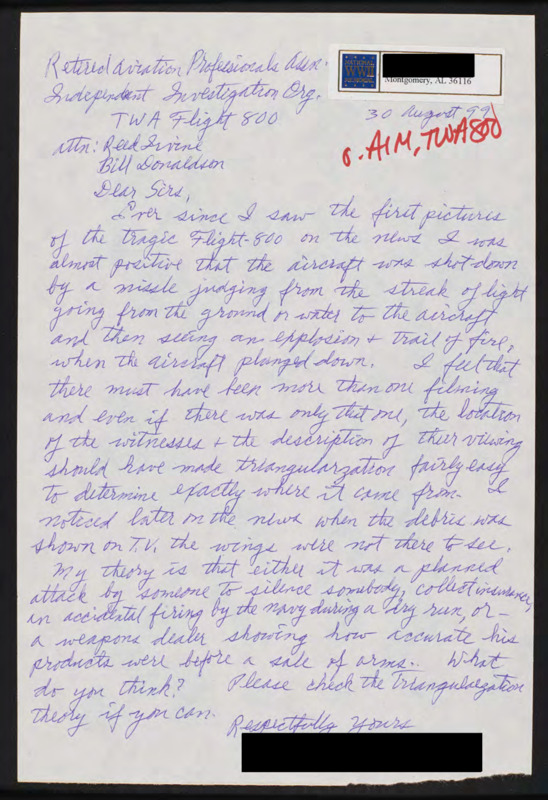 Retired Aviation Professionals Assn.
Independent Investigation Org.
TWA Flight 800
NATIONAL
WWII
MEMORIAL
Montgomery, AL 36116
30 August 99
o. AIM, TWA800
attn: Reed Irvine
Bill Donaldson
Dear Sirs,
Ever since I saw the first pictures
of the tragic Flight-800 on the news I was
almost positive that the aircraft was shot down
by a missle judging from the streak of light
going from the ground or water to the aircraft
and then seeing an explosion + trail of fire,
when the aircraft plunged down. I feel that
there must have been more than one filming
and even if there was only that one, the location
of the witnesses + the description of thier viewing
should have made triangularzation fairly easy
to determine exactly where it came from. I
noticed later on the news when the debris was
shown on T.V. the wings were not there to see.
My theory is that either it was a planned
attack by someone to silence somebody, collect insurance,
an accidental firing by the navy during a dry run, or -
a weapons dealer showing how accurate his
products were before a sale of arms. What
do you think? Please check the Triangularzation
theory if you can.
Respectfully Yours